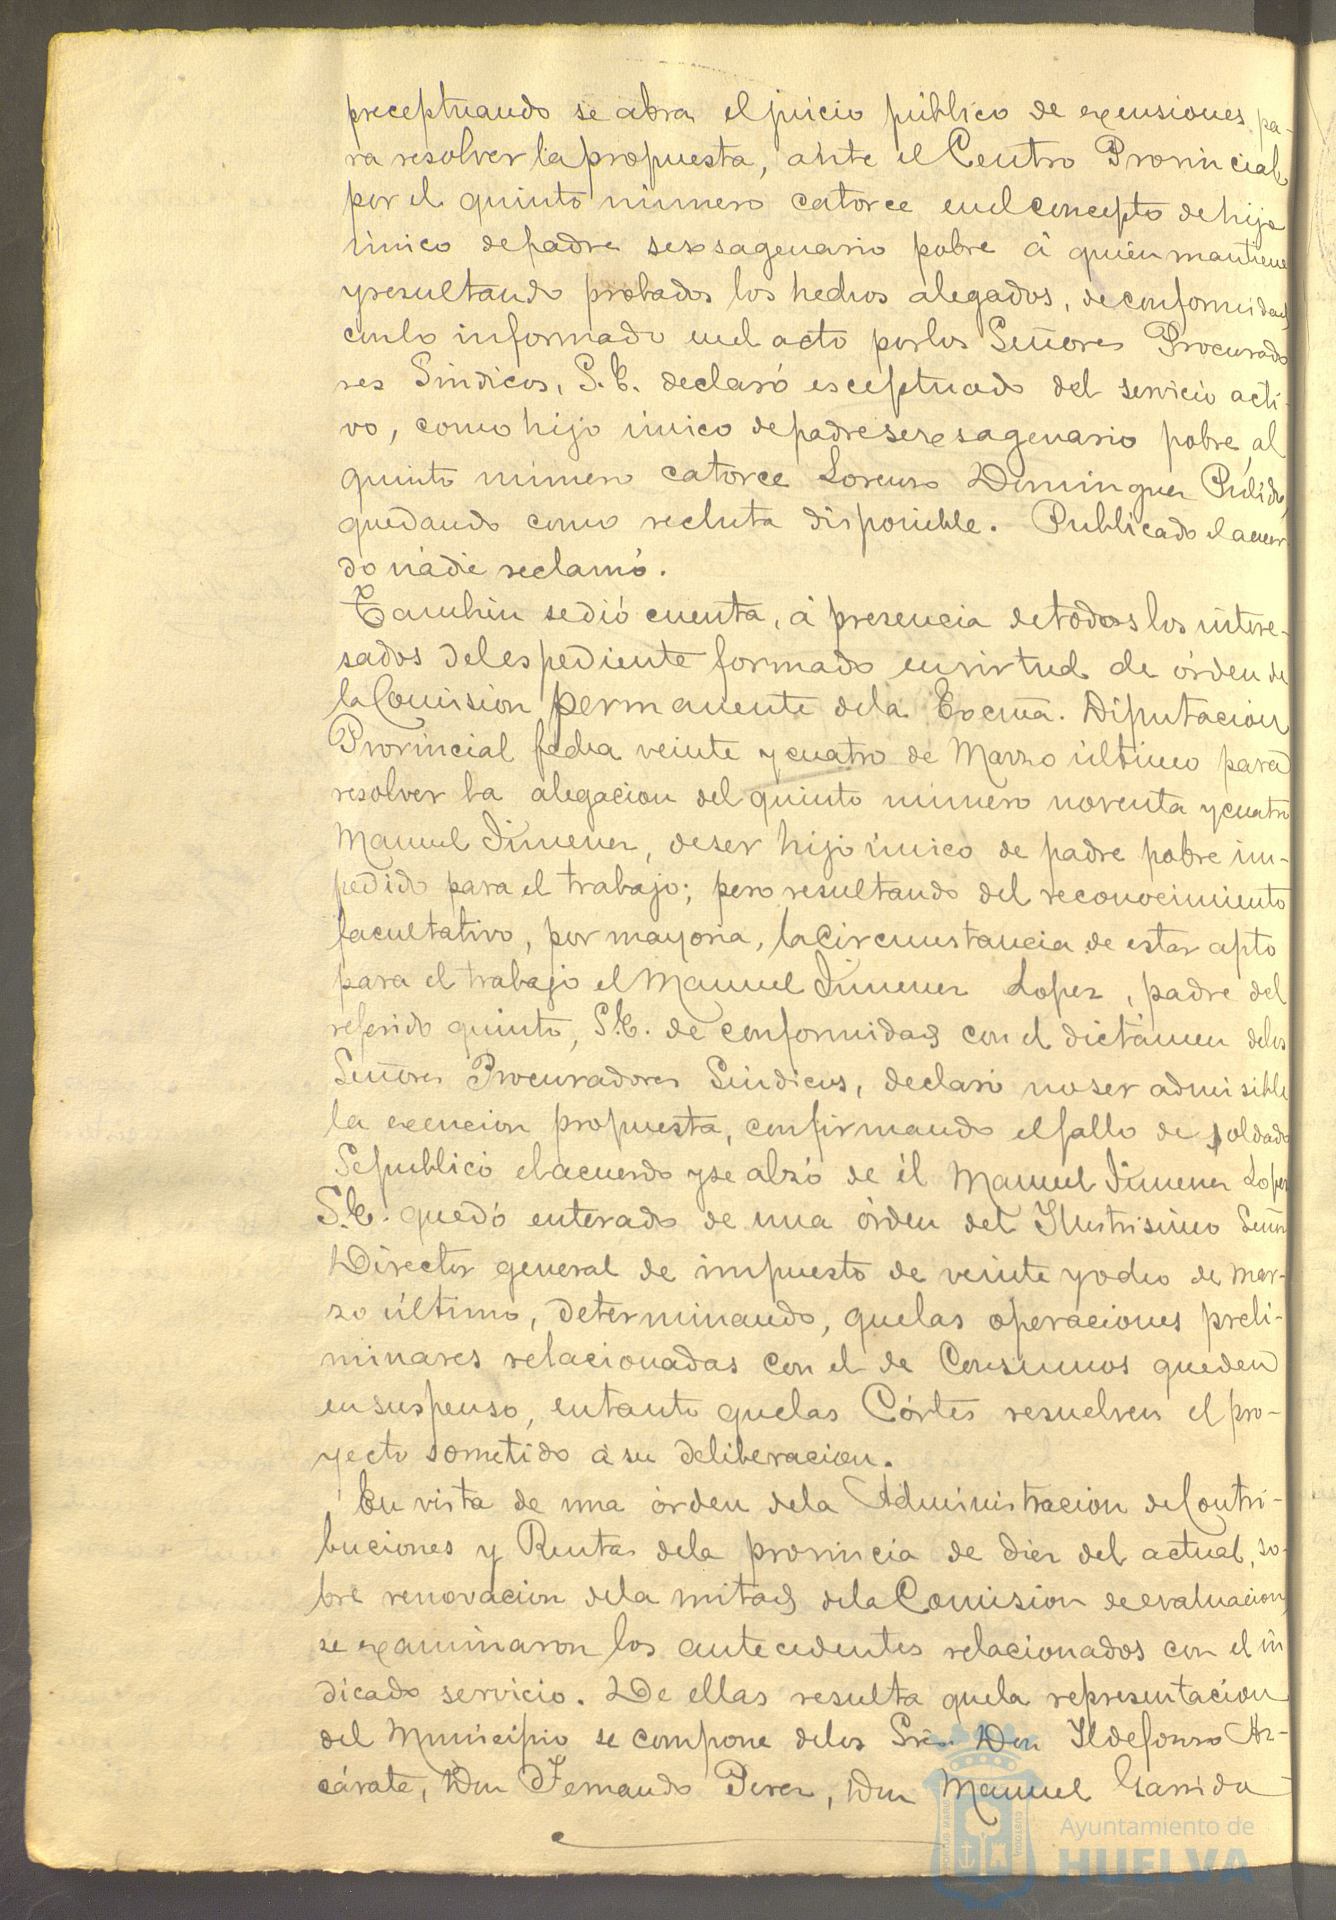 preceptuando se abra el juicio público de exensiones pa-
ra resolver la propuesta, ante el Centro Provincial,
por el quinto número catorce en el concepto de hijo
único de padre sexsagenario pobre á quién mantiene
y resultando probados los hechos alegados, de conformidad
con lo informado en el acto por los Señores Procurado
res Síndicos, S.E. declaró esceptuado del servicio acti-
vo, como hijo único de padre sexsagenario pobre, al
quinto número catorce Lorenzo Dominguez Pulido,
quedando como recluta disponible. Publicado el acuer-
do nádie reclamó.
Tambien se dió cuenta, á presencia de todos los intere-
sados del espediente formado en virtud de órden de
la Comision permanente de la Excma. Diputacion
Provincial fecha veinte y cuatro de Marzo último para
resolver la alegacion del quinto número noventa y cuatro
Manuel Jimenez, de ser hijo único de padre pobre im-
pedido para el trabajo; pero resultando del reconocimiento
facultativo, por mayoria, la circunstancia de estar apto
para el trabajo el Manuel Jimenez Lopez, padre del
referido quinto, S.E. de conformidad con el dictámen de los
Señores Procuradores Síndicos, declaró no ser admisible
la exencion propuesta, confirmando el fallo de soldado
Se publicó el acuerdo y se alzó de él Manuel Jimenez Lopez
S.E. quedó enterado de una órden del Ilustrisimo Señor
Director general de impuesto de veinte y ocho de Mar-
zo último, determinando, que las operaciones preli-
minares relacionadas con el de Consumos queden
en suspenso, en tanto que las Córtes resuelven el pro-
yecto sometido á su deliberacion.
En vista de una órden de la Administracion de Contri-
buciones y Rentas de la provincia de diez del actual, so-
bre renovacion de la mitad de la Comision de evaluacion,
se examinaron los antecedentes relacionados con el in
dicado servicio. De ellas resulta que la representacion
del Municipio se compone de los Sres. Don Ildefonso Az-
cárate, Don Fernando Perez, Don Manuel Garrido
Ayuntamiento de
HUELVA